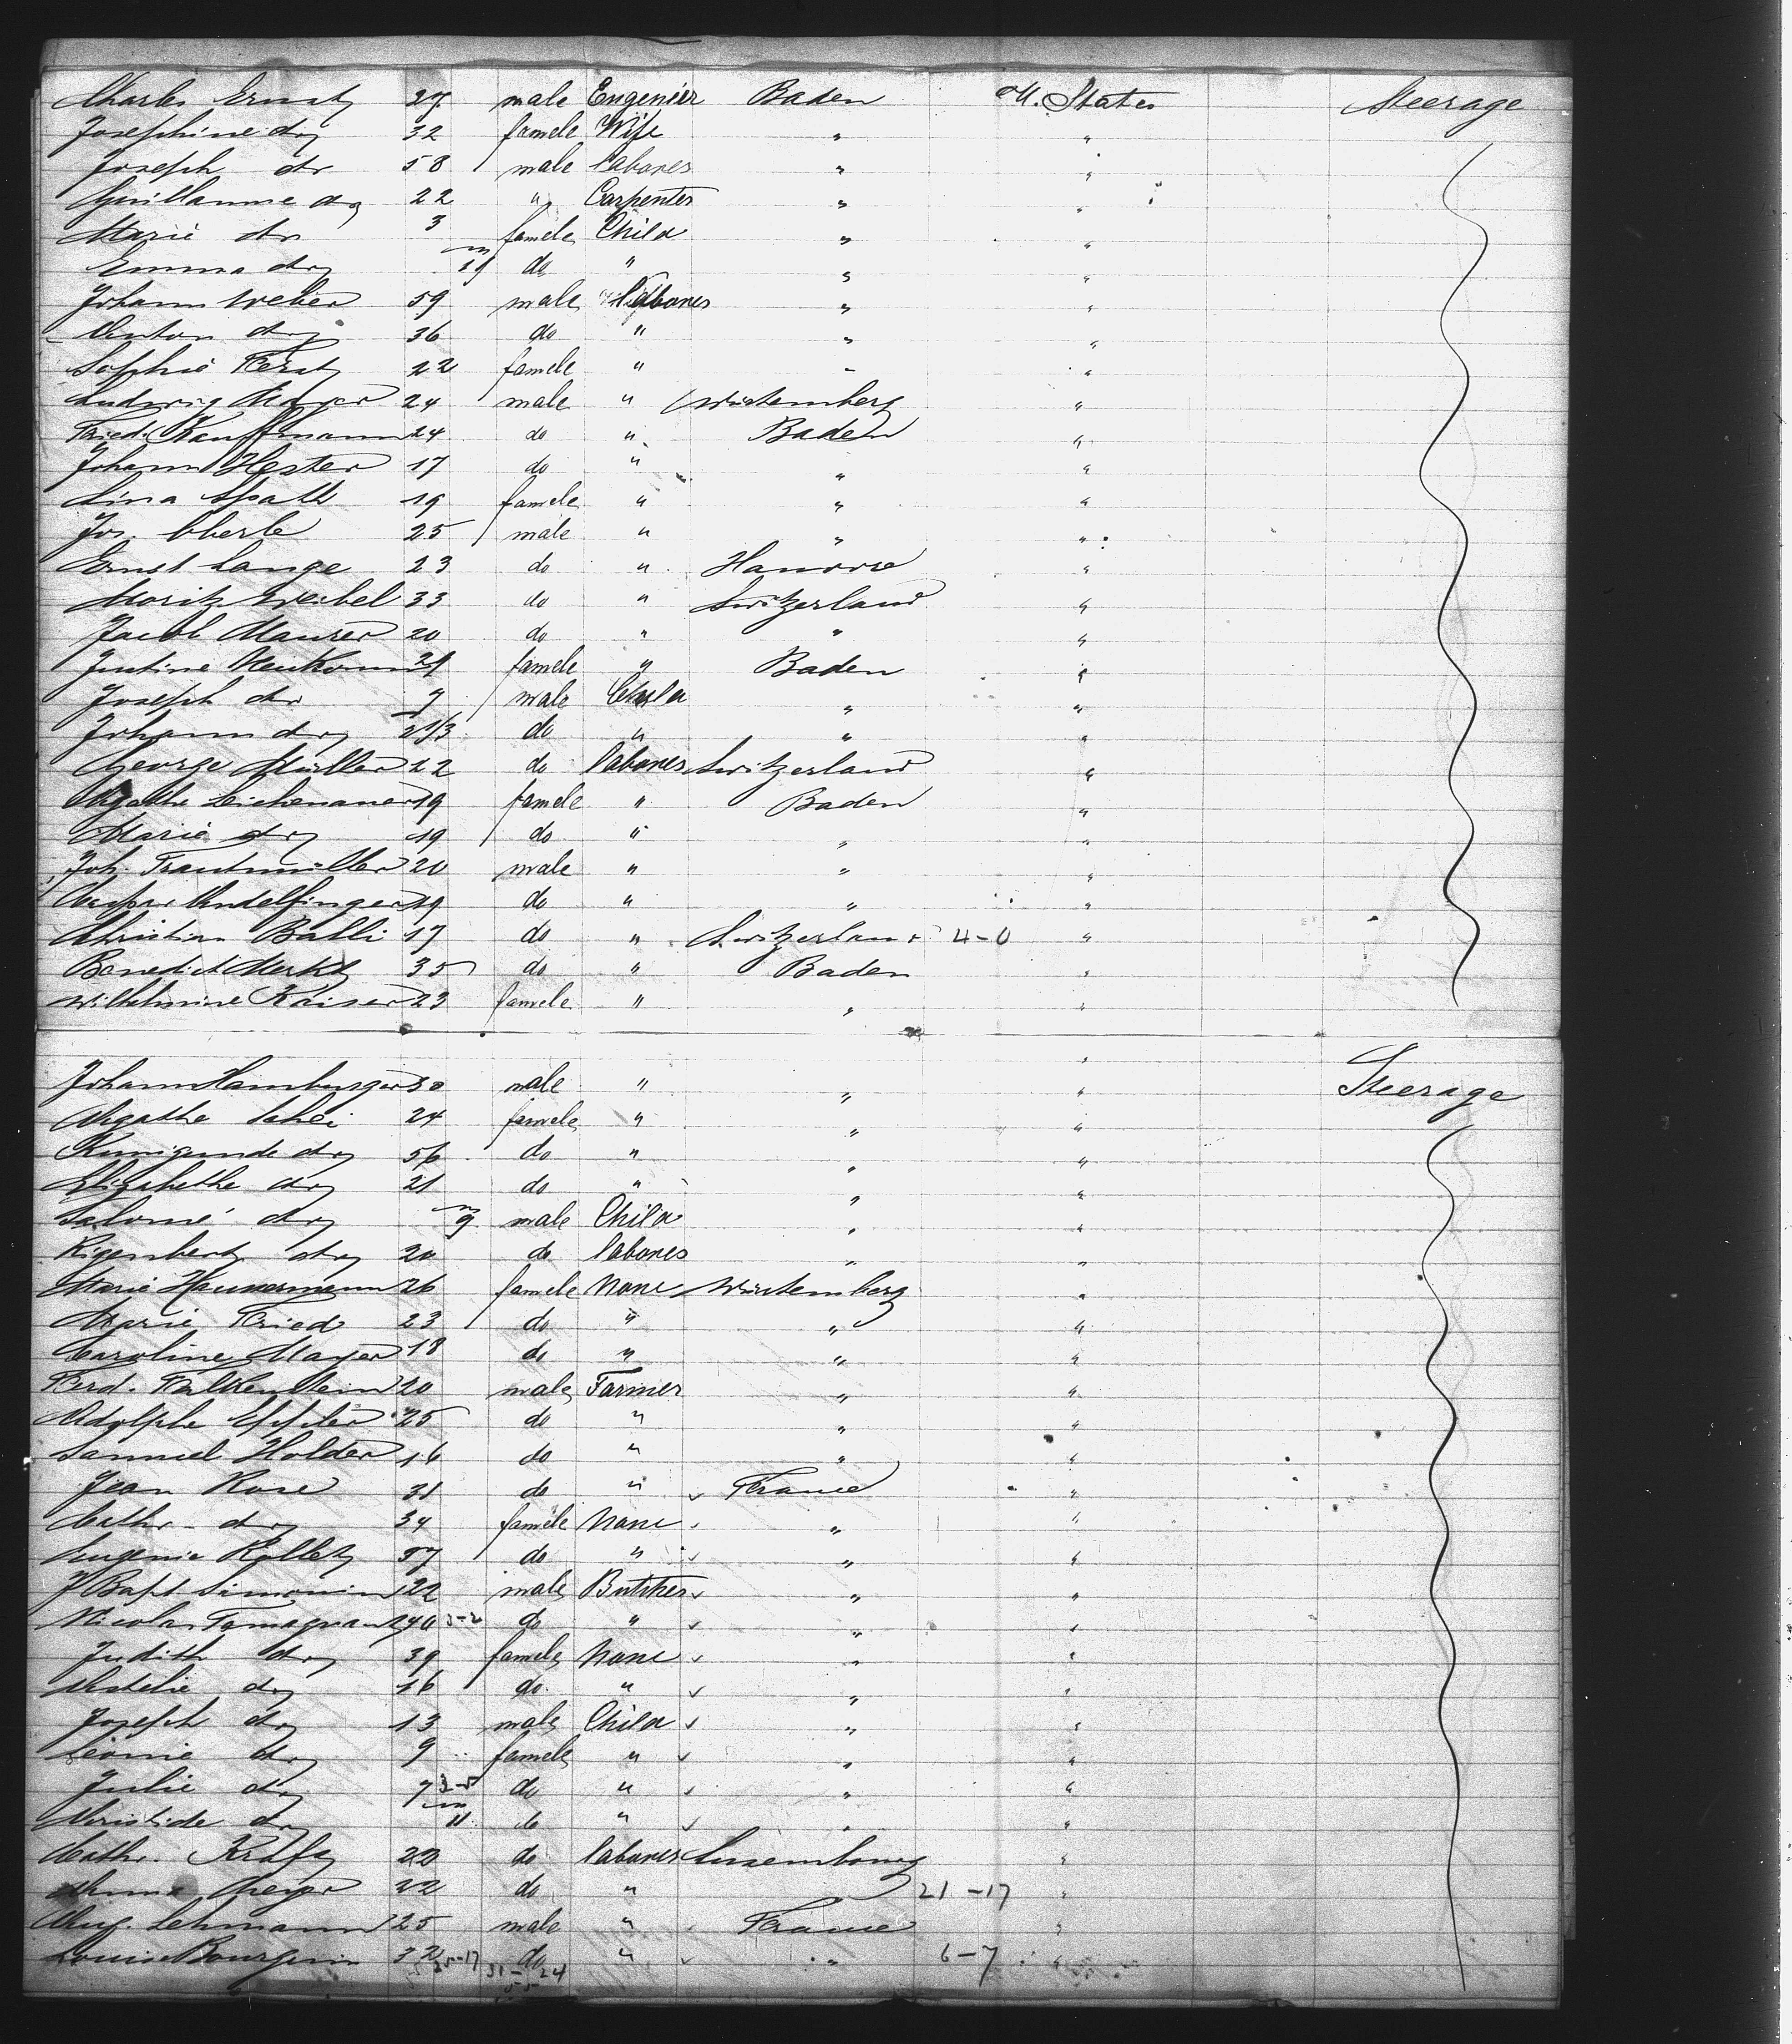 Charles Ernst 27 male Engenier Baden U. States Steerage
Josephine do 32 famele Wife " "
Joseph do 58 male labores " "
Guillaume do 22 " Carpenter " "
Marie do 3 famele Child " "
Emma do m do " " "
Johann Weber 59 male labores " "
Anton do 36 do " " "
Sophie 22 famele " "
Ludwig Mayer 24 male " Würtemberg "
Fried. Kauffmann 24 do " Baden "
Johann Hester 17 do " " "
Lina Spath 19 famele " " "
Jos. Eberle 25 male " " "
Ernst Lange 23 do " Hanovre "
Moritz Weibel 33 do " Switzerland "
Jacob Maurer 20 do " " "
Justine Neukomm famele " Baden "
Joseph do male Child " "
Johann do 2 1/3 do " " "
George Müller 22 do labores Switzerland "
Agathe Leichenauer 19 famele " Baden "
Marie do 19 do " " "
Joh. Trautmüller 20 male " " "
Andelfinger 19 do " " "
Christian Balli 17 do " Switzerland 4-0 "
Benedict Merkt 35 do " Baden "
Wilhelmine Kaiser 23 famele " " "
Johann Hamburger 30 male " " " Steerage
Agathe Schei 24 famele " " "
Kunigunde do 56 do " " "
Elizabethe do 21 do " " "
Salomé do m 9 male Child " "
do 20 do labores " "
Marie Hausermann 26 famele None Würtemberg "
Marie Fried 23 do " " "
Caroline Mayer 18 do " " "
Ferd. Falkenstein 20 male Farmer " "
Adolphe Eppler 25 do " " "
Samuel Holder 16 do " " "
Jean Rose 31 do " France "
Cathr. do 34 famele None " "
Eugenie Rollet 57 do " " "
J Bapt Simonin 22 male Butcher " "
Nicolas 40 3-2 do " " "
Judith do 39 famele None " "
do 16 do " " "
Joseph do 13 male Child " "
Léonie do 9 famele " " "
Julie do 7 do " " "
Aristide do m 11 do " " "
Cathr. 22 do labores Luxembourg "
Anna Meyer 22 do " 21-17 "
Aug. Lehmann 25 male " France "
Louis Bourgeois 32 do " " 6-7 "